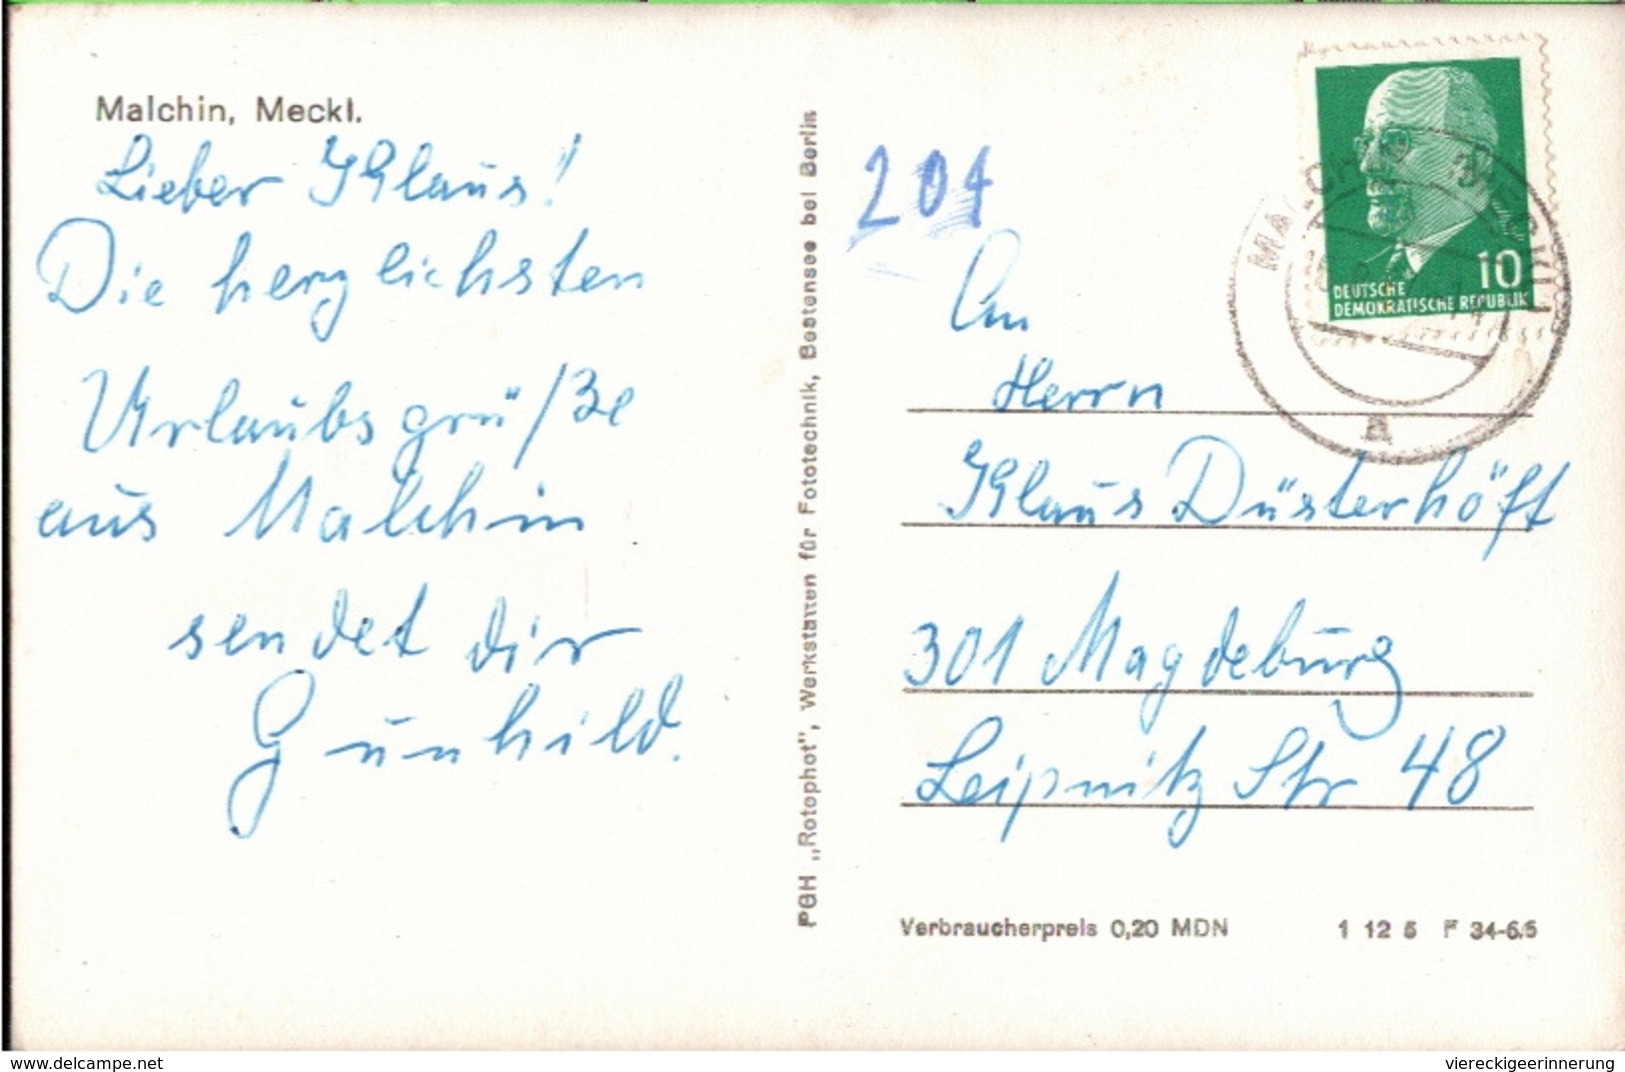 Malchin, Meckl.
Lieber Klaus!
Die herzlichsten
Urlaubsgrüße
aus Malchin
sendet dir
Gunhild.
PGH „Rotophot", Werkstätten für Fototechnik, Bestensee bei Berlin
201
10
DEUTSCHE
DEMOKRATISCHE REPUBLIK
MALCHIN
a
An
Herrn
Klaus Düsterhöft
301 Magdeburg
Leipnitz Str 48
Verbraucherpreis 0,20 MDN 1 12 5 F 34-6.5
delcampe.net
viereckigeerinnerung